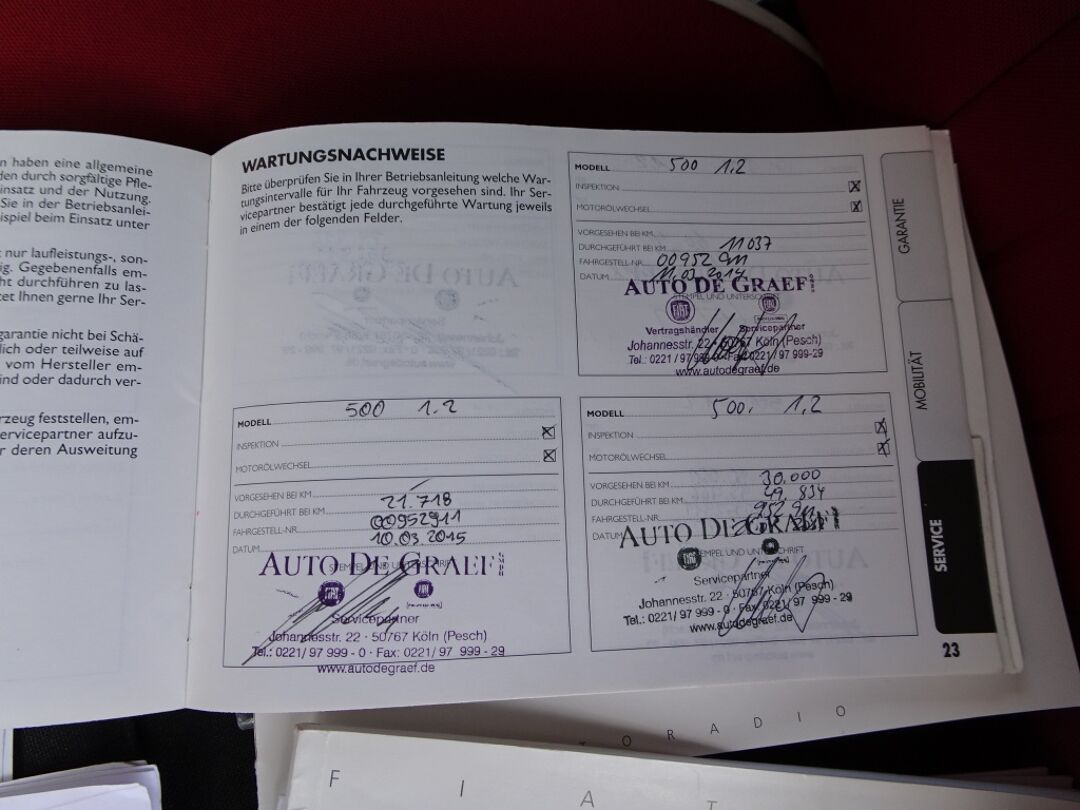 n haben eine allgemeine
den durch sorgfältige Pfle-
insatz und der Nutzung.
Sie in der Betriebsanlei-
ispiel beim Einsatz unter
t nur laufleistungs-, son-
ig. Gegebenenfalls em-
ht durchführen zu las-
tet Ihnen gerne Ihr Ser-
garantie nicht bei Schä-
lich oder teilweise auf
vom Hersteller em-
ind oder dadurch ver-
rzeug feststellen, em-
ervicepartner aufzu-
r deren Ausweitung
WARTUNGSNACHWEISE
Bitte überprüfen Sie in Ihrer Betriebsanleitung welche War-
tungsintervalle für Ihr Fahrzeug vorgesehen sind. Ihr Ser-
vicepartner bestätigt jede durchgeführte Wartung jeweils
in einem der folgenden Felder.
MODELL 500 1.2
INSPEKTION X
MOTORÖLWECHSEL X
VORGESEHEN BEI KM
DURCHGEFÜHRT BEI KM 11037
FAHRGESTELL-NR. 00952911
DATUM 11.03.2014
AUTO DE GRAEF GMBH
STEMPEL UND UNTERSCHRIFT
FIAT
Vertragshändler Servicepartner
Johannesstr. 22 · 50767 Köln (Pesch)
Tel.: 0221 / 97 999-0 · Fax: 0221 / 97 999-29
www.autodegraef.de
MODELL 500 1.2
INSPEKTION X
MOTORÖLWECHSEL X
VORGESEHEN BEI KM
DURCHGEFÜHRT BEI KM 21.718
FAHRGESTELL-NR. 00952911
DATUM 10.03.2015
AUTO DE GRAEF GMBH
STEMPEL UND UNTERSCHRIFT
FIAT
Servicepartner
Johannesstr. 22 · 50767 Köln (Pesch)
Tel.: 0221/ 97 999 - 0 · Fax: 0221/ 97 999 - 29
www.autodegraef.de
MODELL 500. 1.2
INSPEKTION X
MOTORÖLWECHSEL X
VORGESEHEN BEI KM 30.000
DURCHGEFÜHRT BEI KM 49.834
FAHRGESTELL-NR. 952 911
DATUM
AUTO DE GRAEF
STEMPEL UND UNTERSCHRIFT
FIAT
Servicepartner
Johannesstr. 22 · 50767 Köln (Pesch)
Tel.: 0221/ 97 999 - 0 · Fax: 0221/ 97 999 - 29
www.autodegraef.de
GARANTIE
MOBILITÄT
SERVICE
23
TORADIO
FIAT